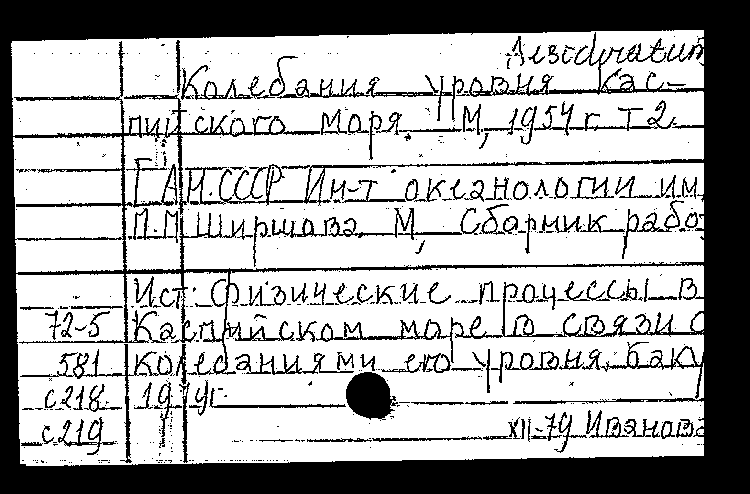 Desideratum
Колебания уровня Кас-
пийского моря. М, 1954 г. Т 2.
[АН.СССР Ин-т океанологии им.
П.П Ширшова. М, Сборник рабо
Ист: Физические процессы в
72-5 Каспийском море в связи с
581 колебаниями его уровня. баку
с218 19 г.
с219 XII-79 Иванова